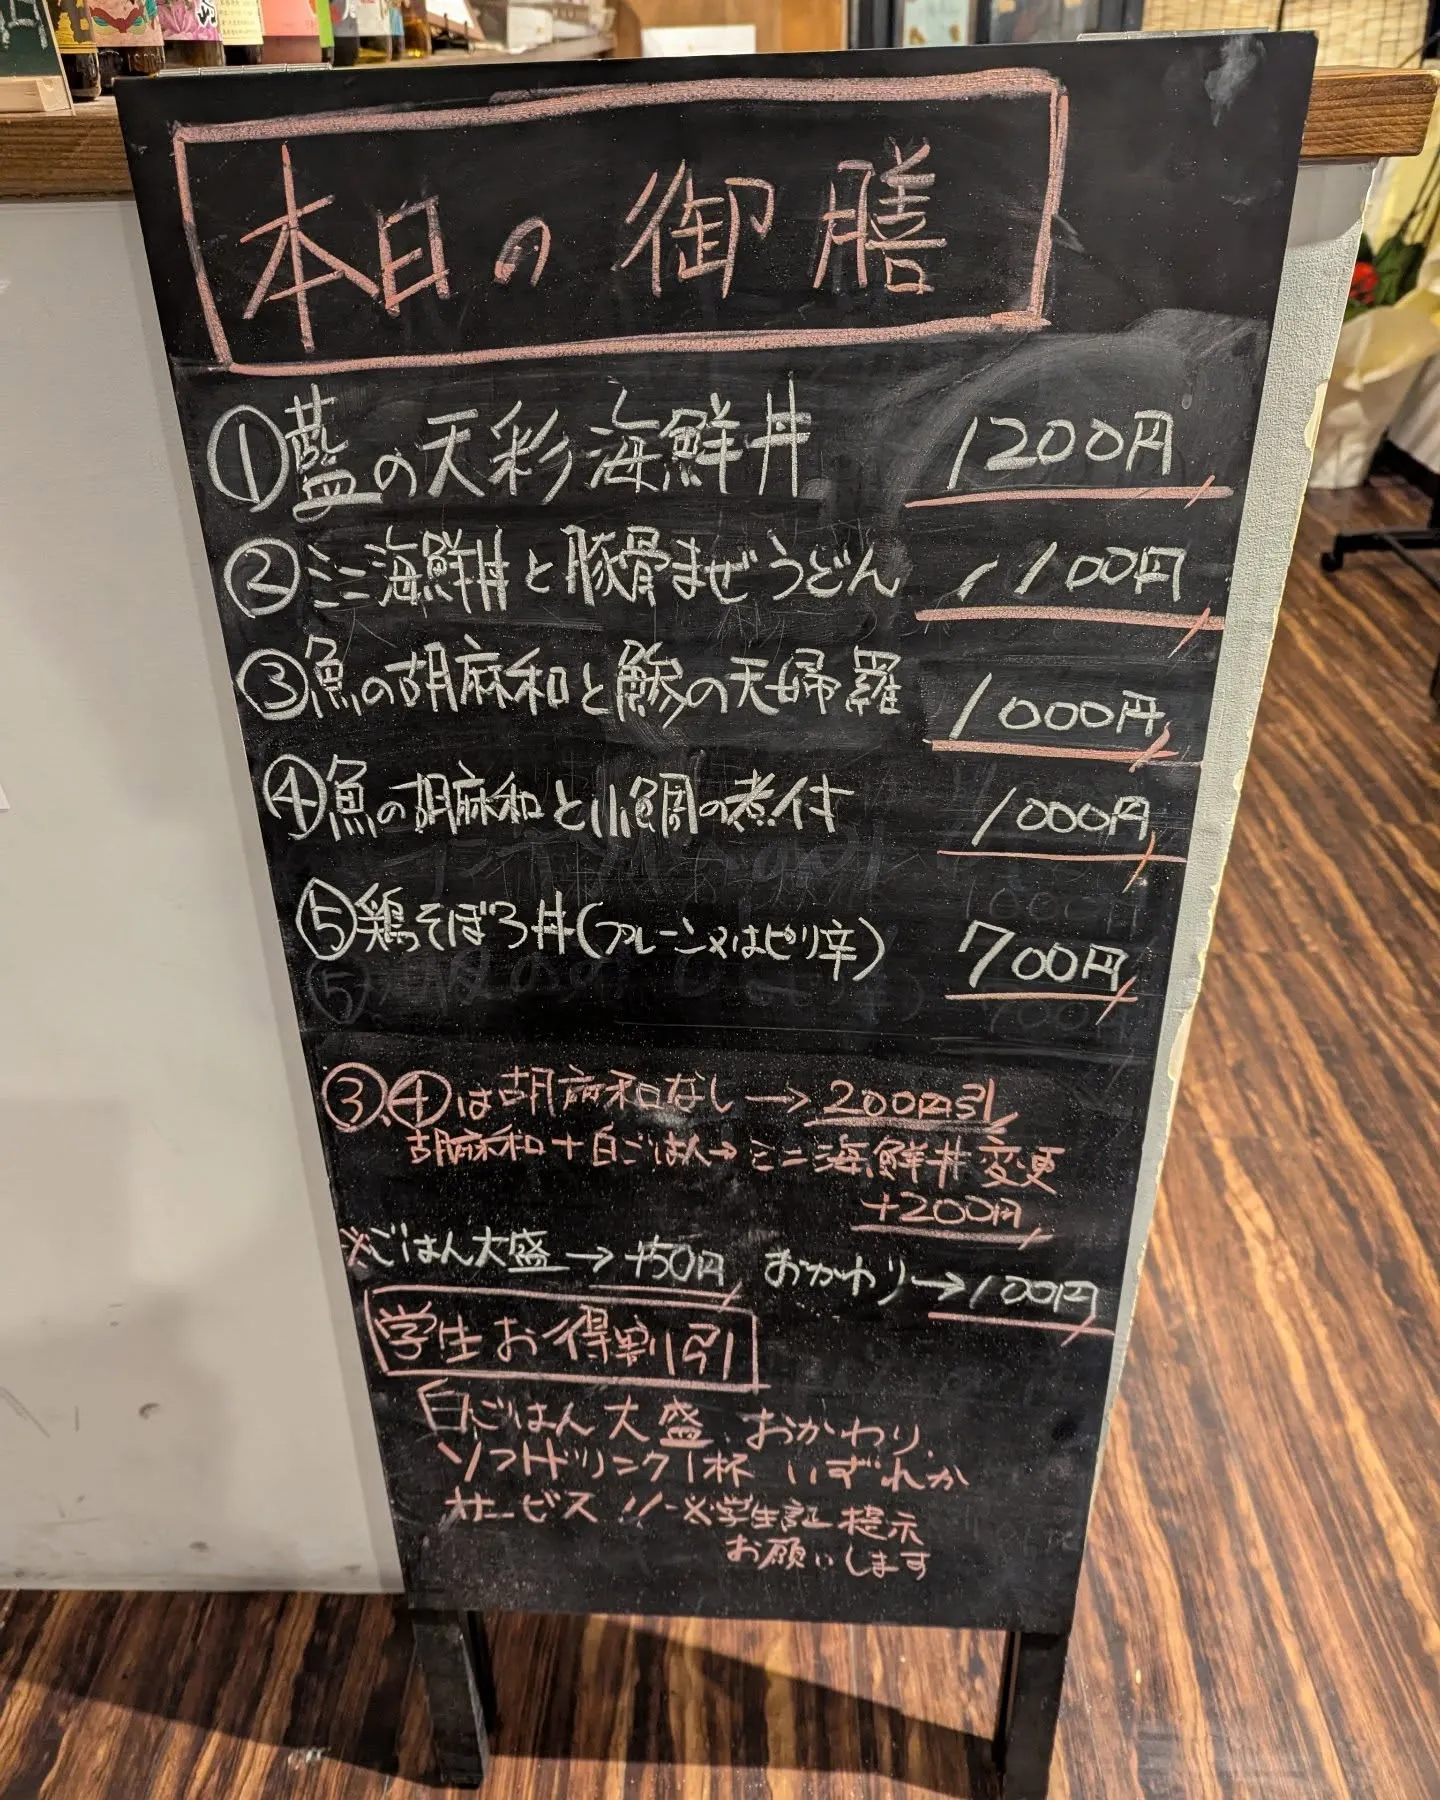 本日の御膳
①藍の天彩海鮮丼 1200円
②ミニ海鮮丼と豚骨まぜうどん 1100円
③魚の胡麻和と鯵の天婦羅 1000円
④魚の胡麻和と小鯛の煮付 1000円
⑤鶏そぼろ丼(プレーン又はピリ辛) 700円
③、④は胡麻和なし→200円引
胡麻和+白ごはん→ミニ海鮮丼変更
+200円
※ごはん大盛→+50円 おかわり→100円
学生お得割引
白ごはん大盛、おかわり、
ソフトドリンク1杯 いずれか
サービス!!※学生証提示
お願いします